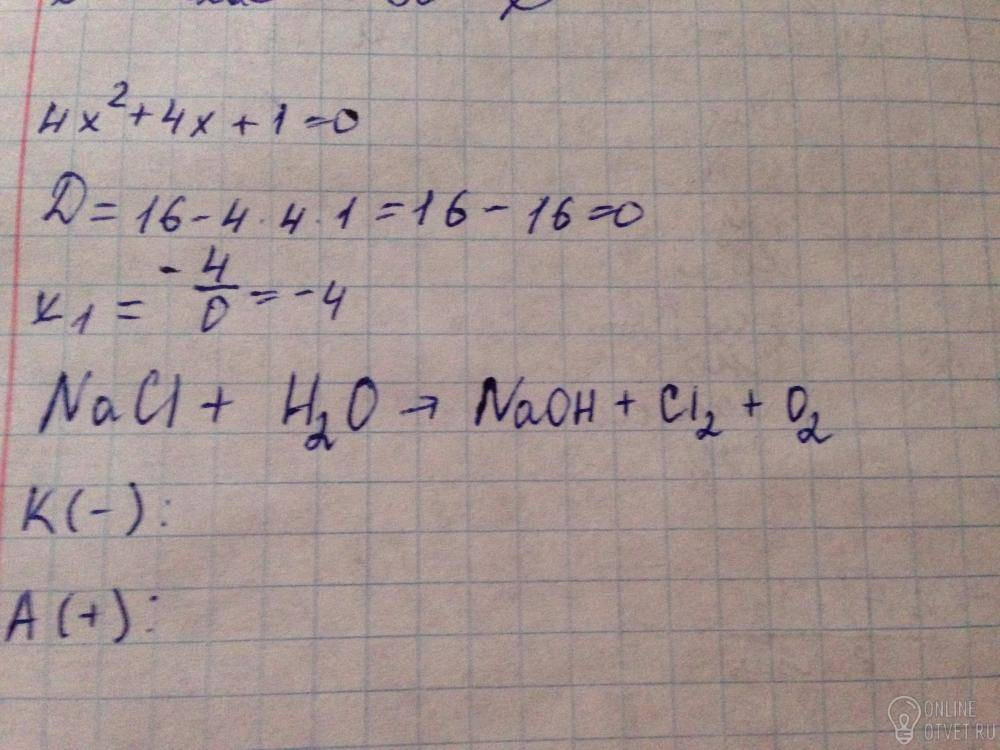 4x²+4x+1=0
D=16-4·4·1=16-16=0
x₁=-4/0=-4
NaCl+H₂O→NaOH+Cl₂+O₂
K(-):
A(+):
ONLINE
OTVET.RU